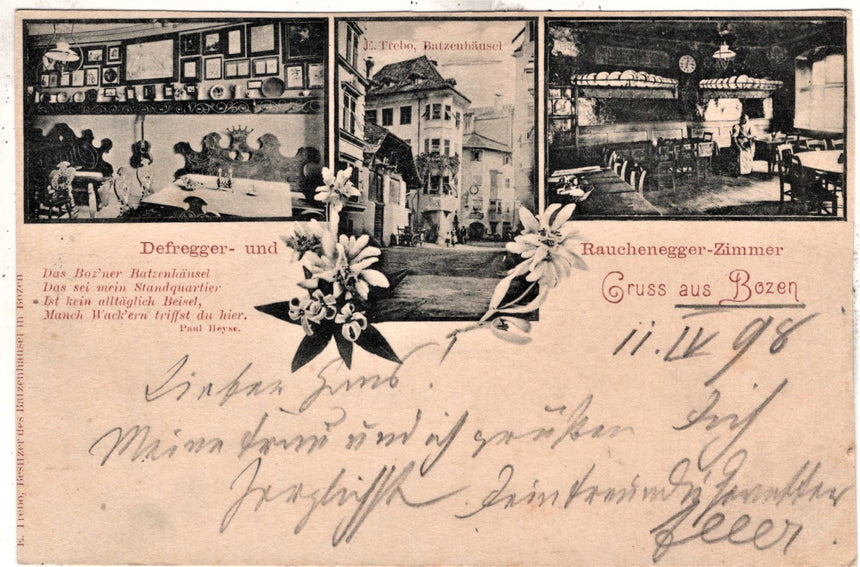 E. Trebo, Batzenhäusel
Defregger- und Rauchenegger-Zimmer
Das Boz'ner Batzenhäusel
Das sei mein Standquartier
Ist kein alltäglich Beisel,
Manch Wack'ern triffst du hier.
Paul Heyse.
Gruss aus Bozen
E. Trebo, Besitzer des Batzenhäusel in Bozen
11. IV 98
Lieber Hans!
Meine Frau und ich grüßen Dich
Herzlichst Dein Freund &